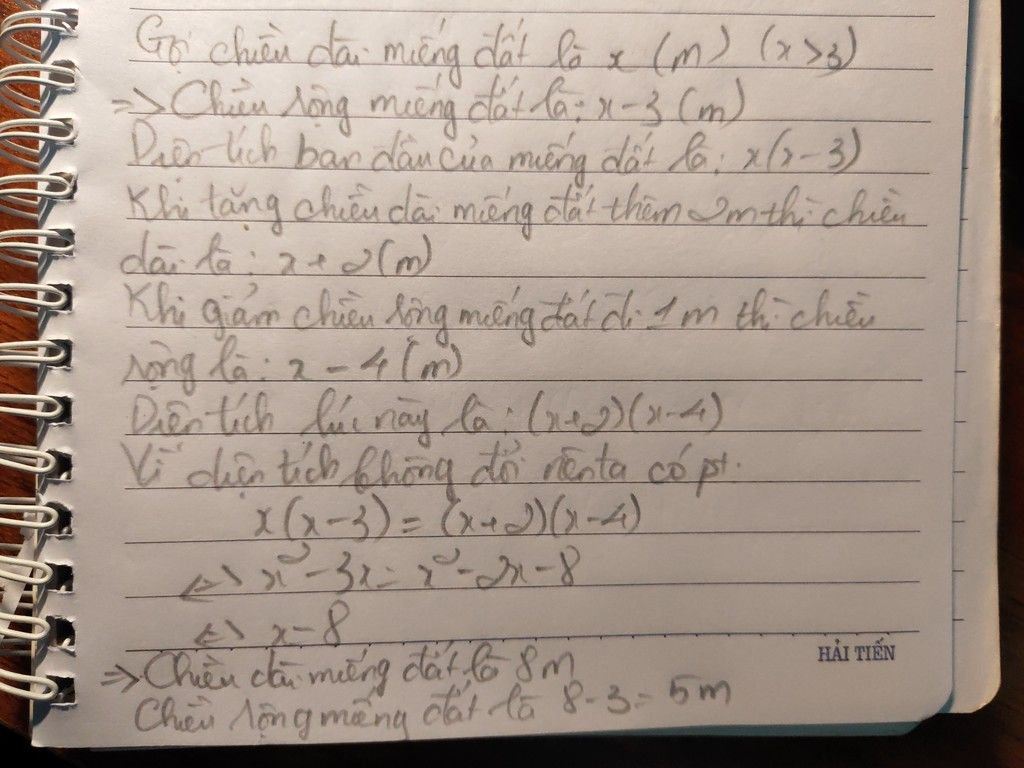 Gọi chiều dài miếng đất là x (m) (x>3)
=> Chiều rộng miếng đất là: x-3 (m)
Diện tích ban đầu của miếng đất là: x(x-3)
Khi tăng chiều dài miếng đất thêm 2m thì chiều
dài là: x+2(m)
Khi giảm chiều rộng miếng đất đi 1m thì chiều
rộng là: x-4(m)
Diện tích lúc này là: (x+2)(x-4)
Vì diện tích không đổi nên ta có pt:
x(x-3) = (x+2)(x-4)
<=> x²-3x = x²-2x-8
<=> x=8
HẢI TIẾN
=> Chiều dài miếng đất là 8m
Chiều rộng miếng đất là 8-3=5m